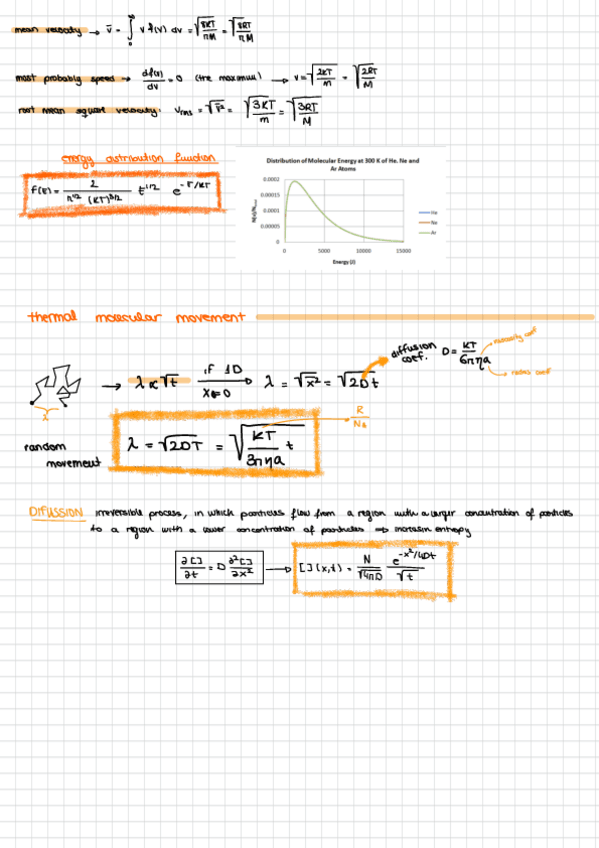 mean velocity → v̄ = ∫₀^∞ v f(v) dv = √(8KT/πM) = √(8RT/πM)
most probably speed → df(v)/dv = 0 (the maximum) → v = √(2KT/m) = √(2RT/M)
root mean square velocity: Vrms = √v̄² = √(3KT/m) = √(3RT/M)
energy distribution function
f(E) = 2/(π^1/2 (KT)^3/2) E^1/2 e^-E/KT
Distribution of Molecular Energy at 300 K of He, Ne and
Ar Atoms
0.0002
0.00015
0.0001
0.00005
0
0 5000 10000 15000
Energy (J)
He
Ne
Ar
thermal molecular movement
→ λ ∝ √t if 1D x₀=0 → λ = √x̄² = √(2Dt)
diffusion coef. D = KT/6πηa
viscosity coef
radius coef
λ
random
movement
λ = √(2DT) = √(KT/3πηa t)
R/NA
DIFUSSION irreversible process, in which particles flow from a region with a larger concentration of particles
to a region with a lower concentration of particles ⇒ increasin entropy
∂[]/∂t = D ∂²[]/∂x² → [](x,t) = N/√(4πD) e^-x²/4Dt/√t